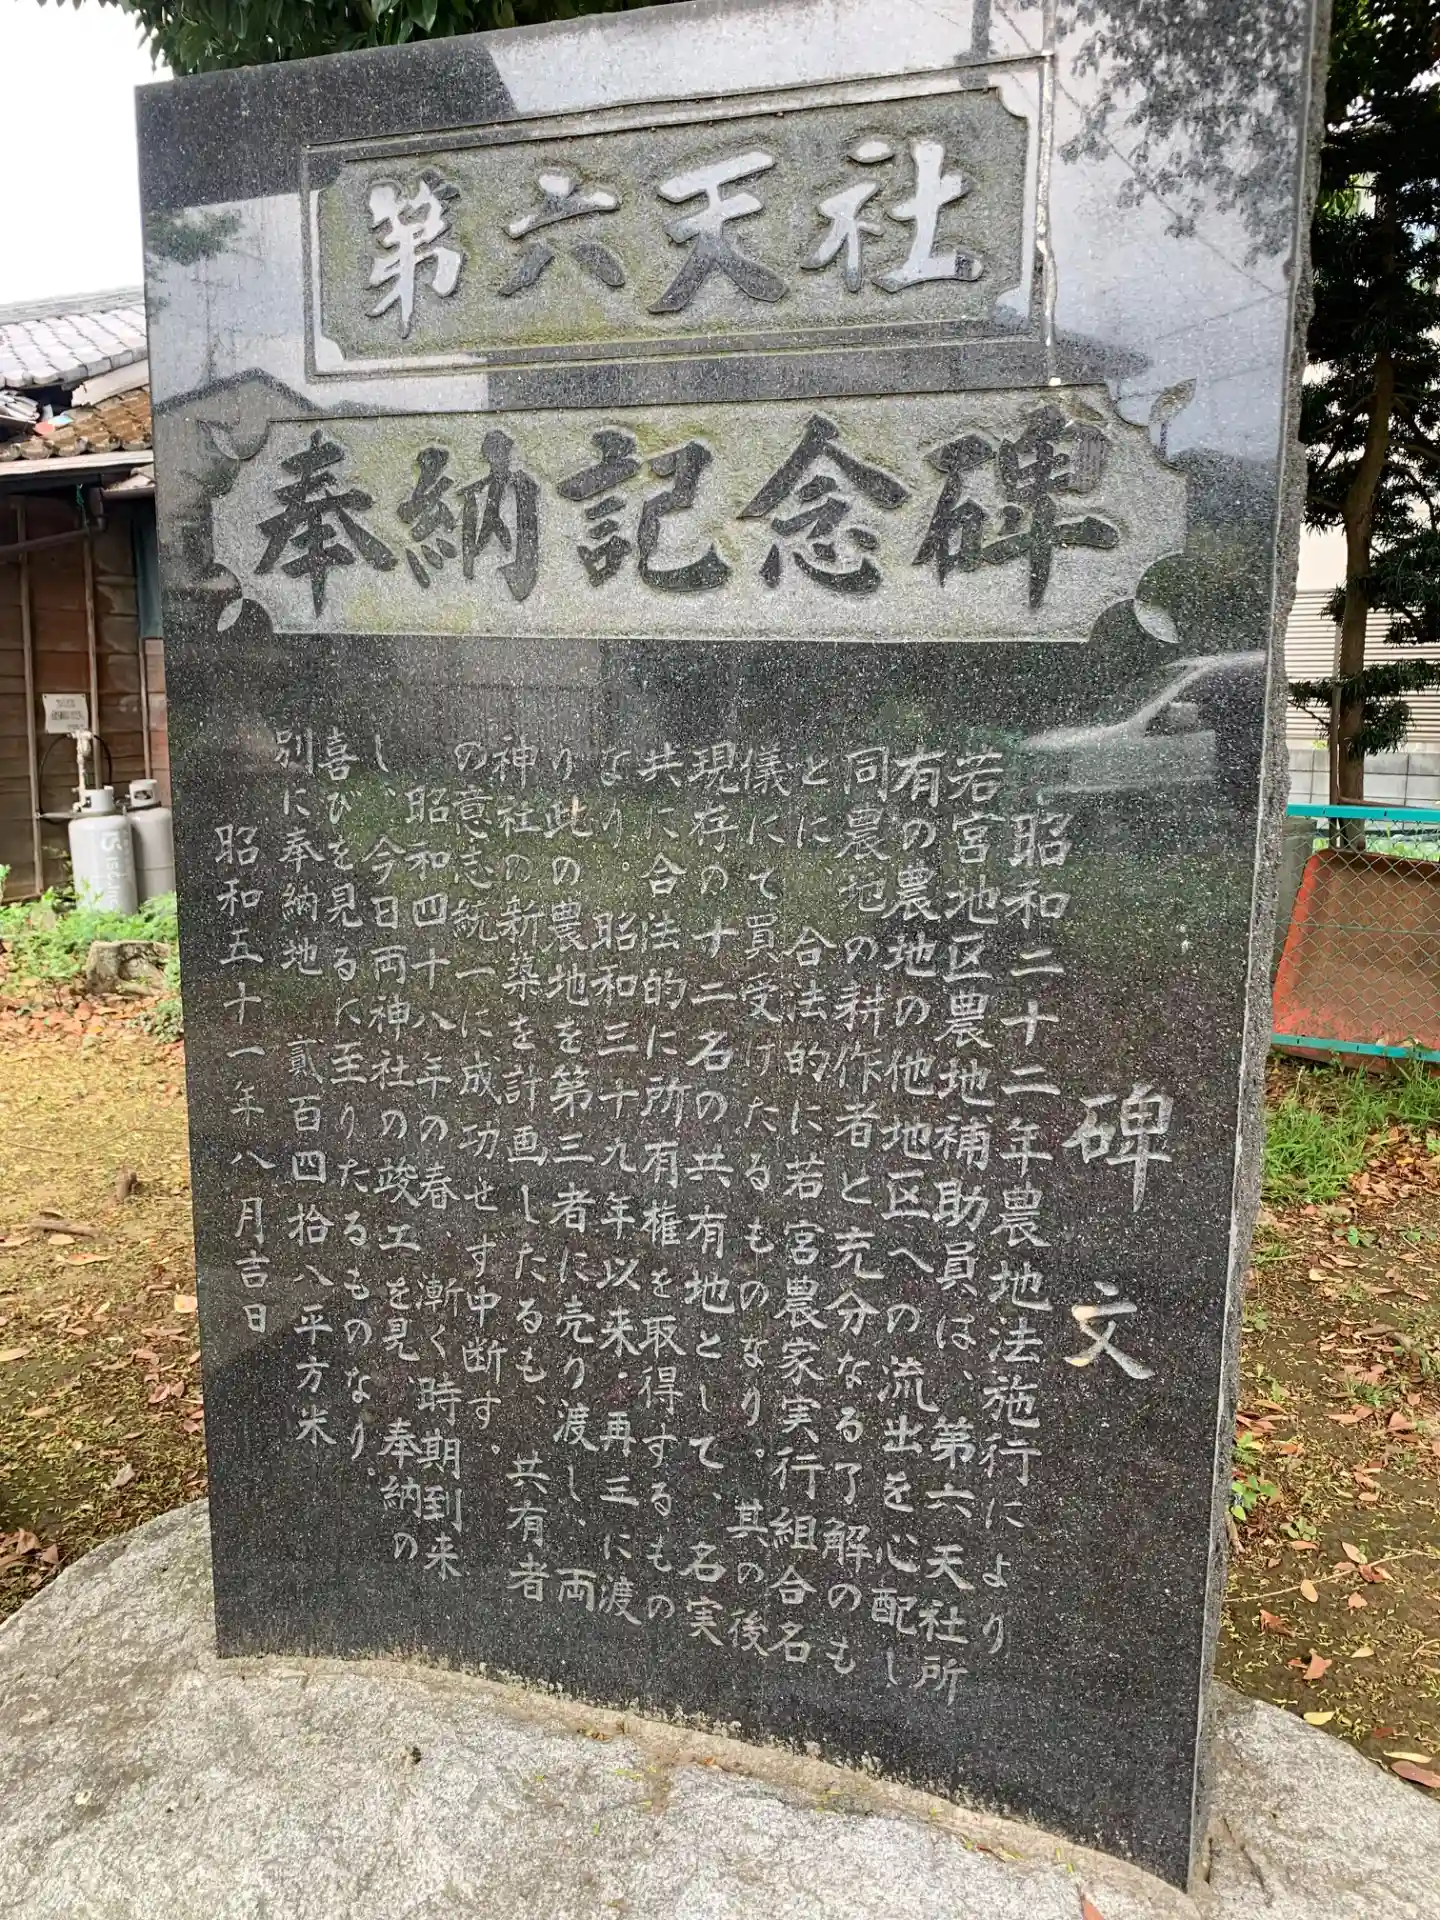 第六天社
奉納記念碑
碑文
昭和二十二年農地法施行により
若宮地区農地補助員は、第六天社所
有の農地の他地区への流出を心配し
同農地の耕作者と充分なる了解のも
とに、合法的に若宮農家実行組合名
儀にて買受けたるものなり。其の後
現存の十二名の共有地として、名実
共に合法的に所有権を取得するもの
なり。昭和三十九年以来・再三に渡
り此の農地を第三者に売り渡し、両
神社の新築を計画したるも、共有者
の意志統一に成功せず中断す。
昭和四十八年の春、漸く時期到来
し、今日両神社の竣工を見、奉納の
喜びを見るに至りたるものなり。
別に奉納地 貳百四拾八平方米
昭和五十一年八月吉日